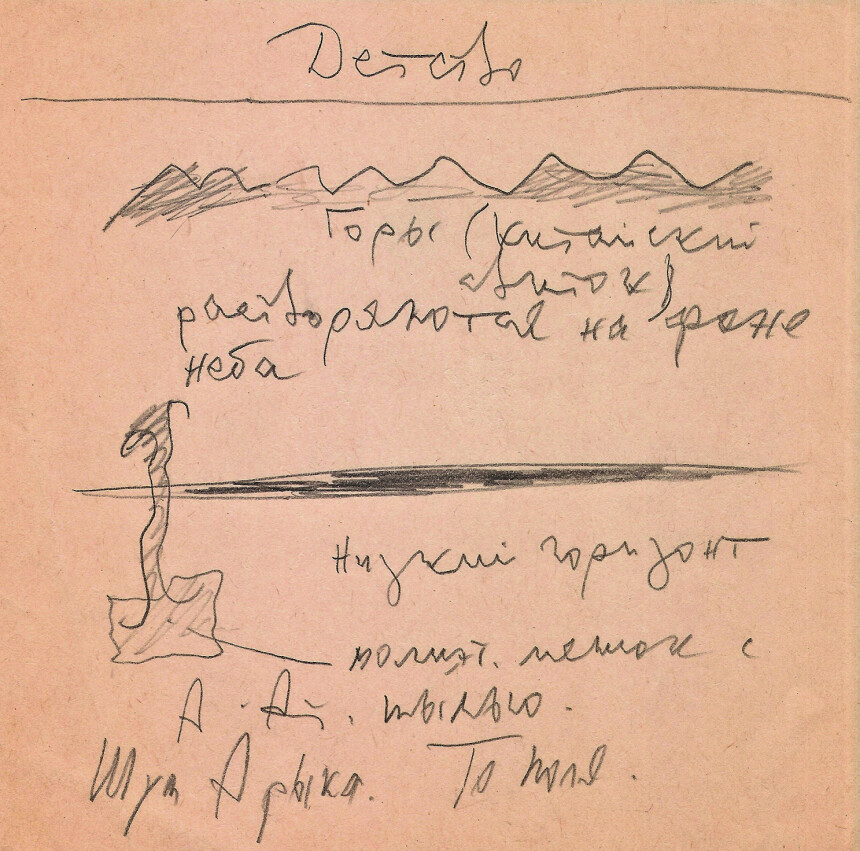 Детство
Горы (китайский
растворяются на фоне
неба
Низкий горизонт
полиэт. мешок с
А.-Ат. пылью.
Шум Арыка. Тополя.